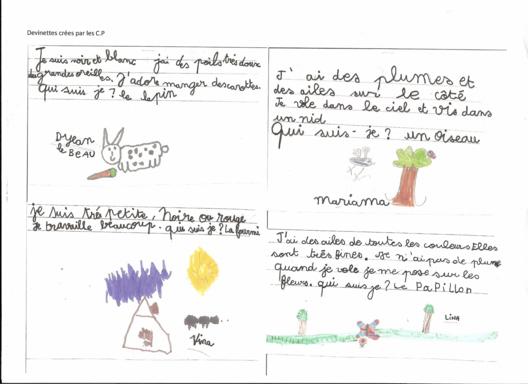 Devinettes crées par les C.P
Je suis noir et blanc j'ai des poils très doux
des grandes oreilles. J'adore manger des carottes.
Qui suis je? le lapin
Dylan
le BEAU
J'ai des plumes et
des ailes sur le côté
Je vole dans le ciel et vis dans
un nid
Qui suis-je? un oiseau
Mariama
je suis très petite, Noire ou rouge
Je travaille beaucoup. qui suis je? La fourmi
Vina
J'ai des ailes de toutes les couleurs Elles
sont très fines. Je n'ai pas de plume
quand je vole je me pose sur les
fleurs. qui suis je? Le PaPillon
LINA